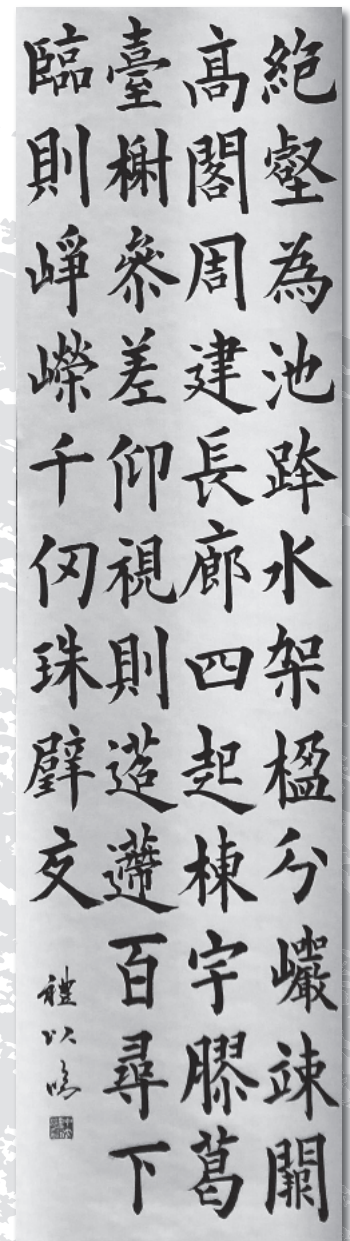 絶壑為池跨水架楹分巖竦闕
高閣周建長廊四起棟宇膠葛
臺榭参差仰視則迢遰百尋下
臨則崢嶸千仞珠璧交
禮以